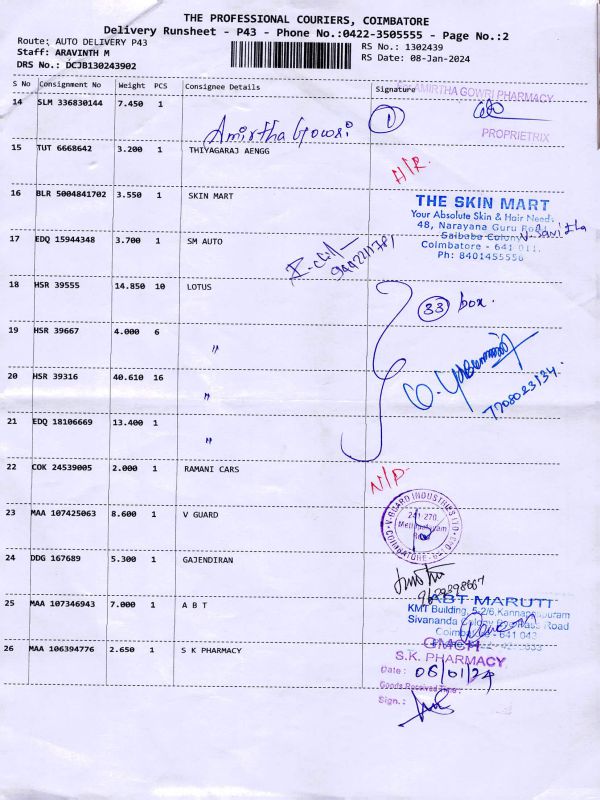 THE PROFESSIONAL COURIERS, COIMBATORE
Delivery Runsheet - P43 - Phone No.:0422-3505555 - Page No.:2
Route: AUTO DELIVERY P43
Staff: ARAVINTH M
DRS No.: DCJB130243902
RS No.: 1302439
RS Date: 08-Jan-2024
S No Consignment No Weight PCS Consignee Details Signature
14 SLM 336830144 7.450 1
Amirtha Gowri
1
AMIRTHA GOWRI PHARMACY
PROPRIETRIX
15 TUT 6668642 3.200 1 THIYAGARAJ AENGG
H/R.
16 BLR 5004841702 3.550 1 SKIN MART
THE SKIN MART
Your Absolute Skin & Hair Needs
48, Narayana Guru Road,
Saibaba Colony
Coimbatore - 641 011.
Ph: 8401455556
17 EDQ 15944348 3.700 1 SM AUTO
18 HSR 39555 14.850 10 LOTUS
33 box.
19 HSR 39667 4.000 6 "
20 HSR 39316 40.610 16 "
7708023134.
21 EDQ 18106669 13.400 1 "
22 COK 24539005 2.000 1 RAMANI CARS
N/P
23 MAA 107425063 8.600 1 V GUARD
V-GUARD INDUSTRIES LTD
Mettupalayam
Road
24 DDG 167689 5.300 1 GAJENDIRAN
25 MAA 107346943 7.000 1 A B T
ABT MARUTI
KMT Building, 5-2/6, Kannappapuram
Sivananda Colony Road
Coimbatore - 641 043
26 MAA 106394776 2.650 1 S K PHARMACY
GMCH
S.K. PHARMACY
Date : 06/01/24
Goods Received Time :
Sign. :